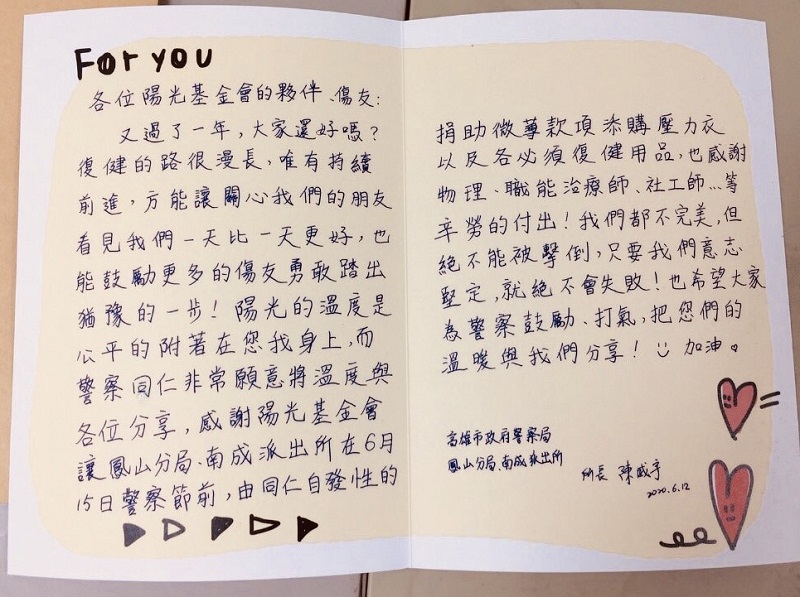 For you
各位陽光基金會的夥伴、傷友:
又過了一年，大家還好嗎？
復健的路很漫長，唯有持續
前進，方能讓關心我們的朋友
看見我們一天比一天更好，也
能鼓勵更多的傷友勇敢踏出
猶豫的一步！陽光的溫度是
公平的附著在您我身上，而
警察同仁非常願意將溫度與
各位分享，感謝陽光基金會
讓鳳山分局、南成派出所在6月
15日警察節前，由同仁自發性的
捐助微薄款項添購壓力衣
以及各必須復健用品，也感謝
物理、職能治療師、社工師…等
辛勞的付出！我們都不完美，但
絕不能被擊倒，只要我們意志
堅定，就絕不會失敗！也希望大家
為警察鼓勵、打氣，把您們的
溫暖與我們分享！加油。
高雄市政府警察局
鳳山分局、南成派出所
所長 陳威宇
2020.6.12